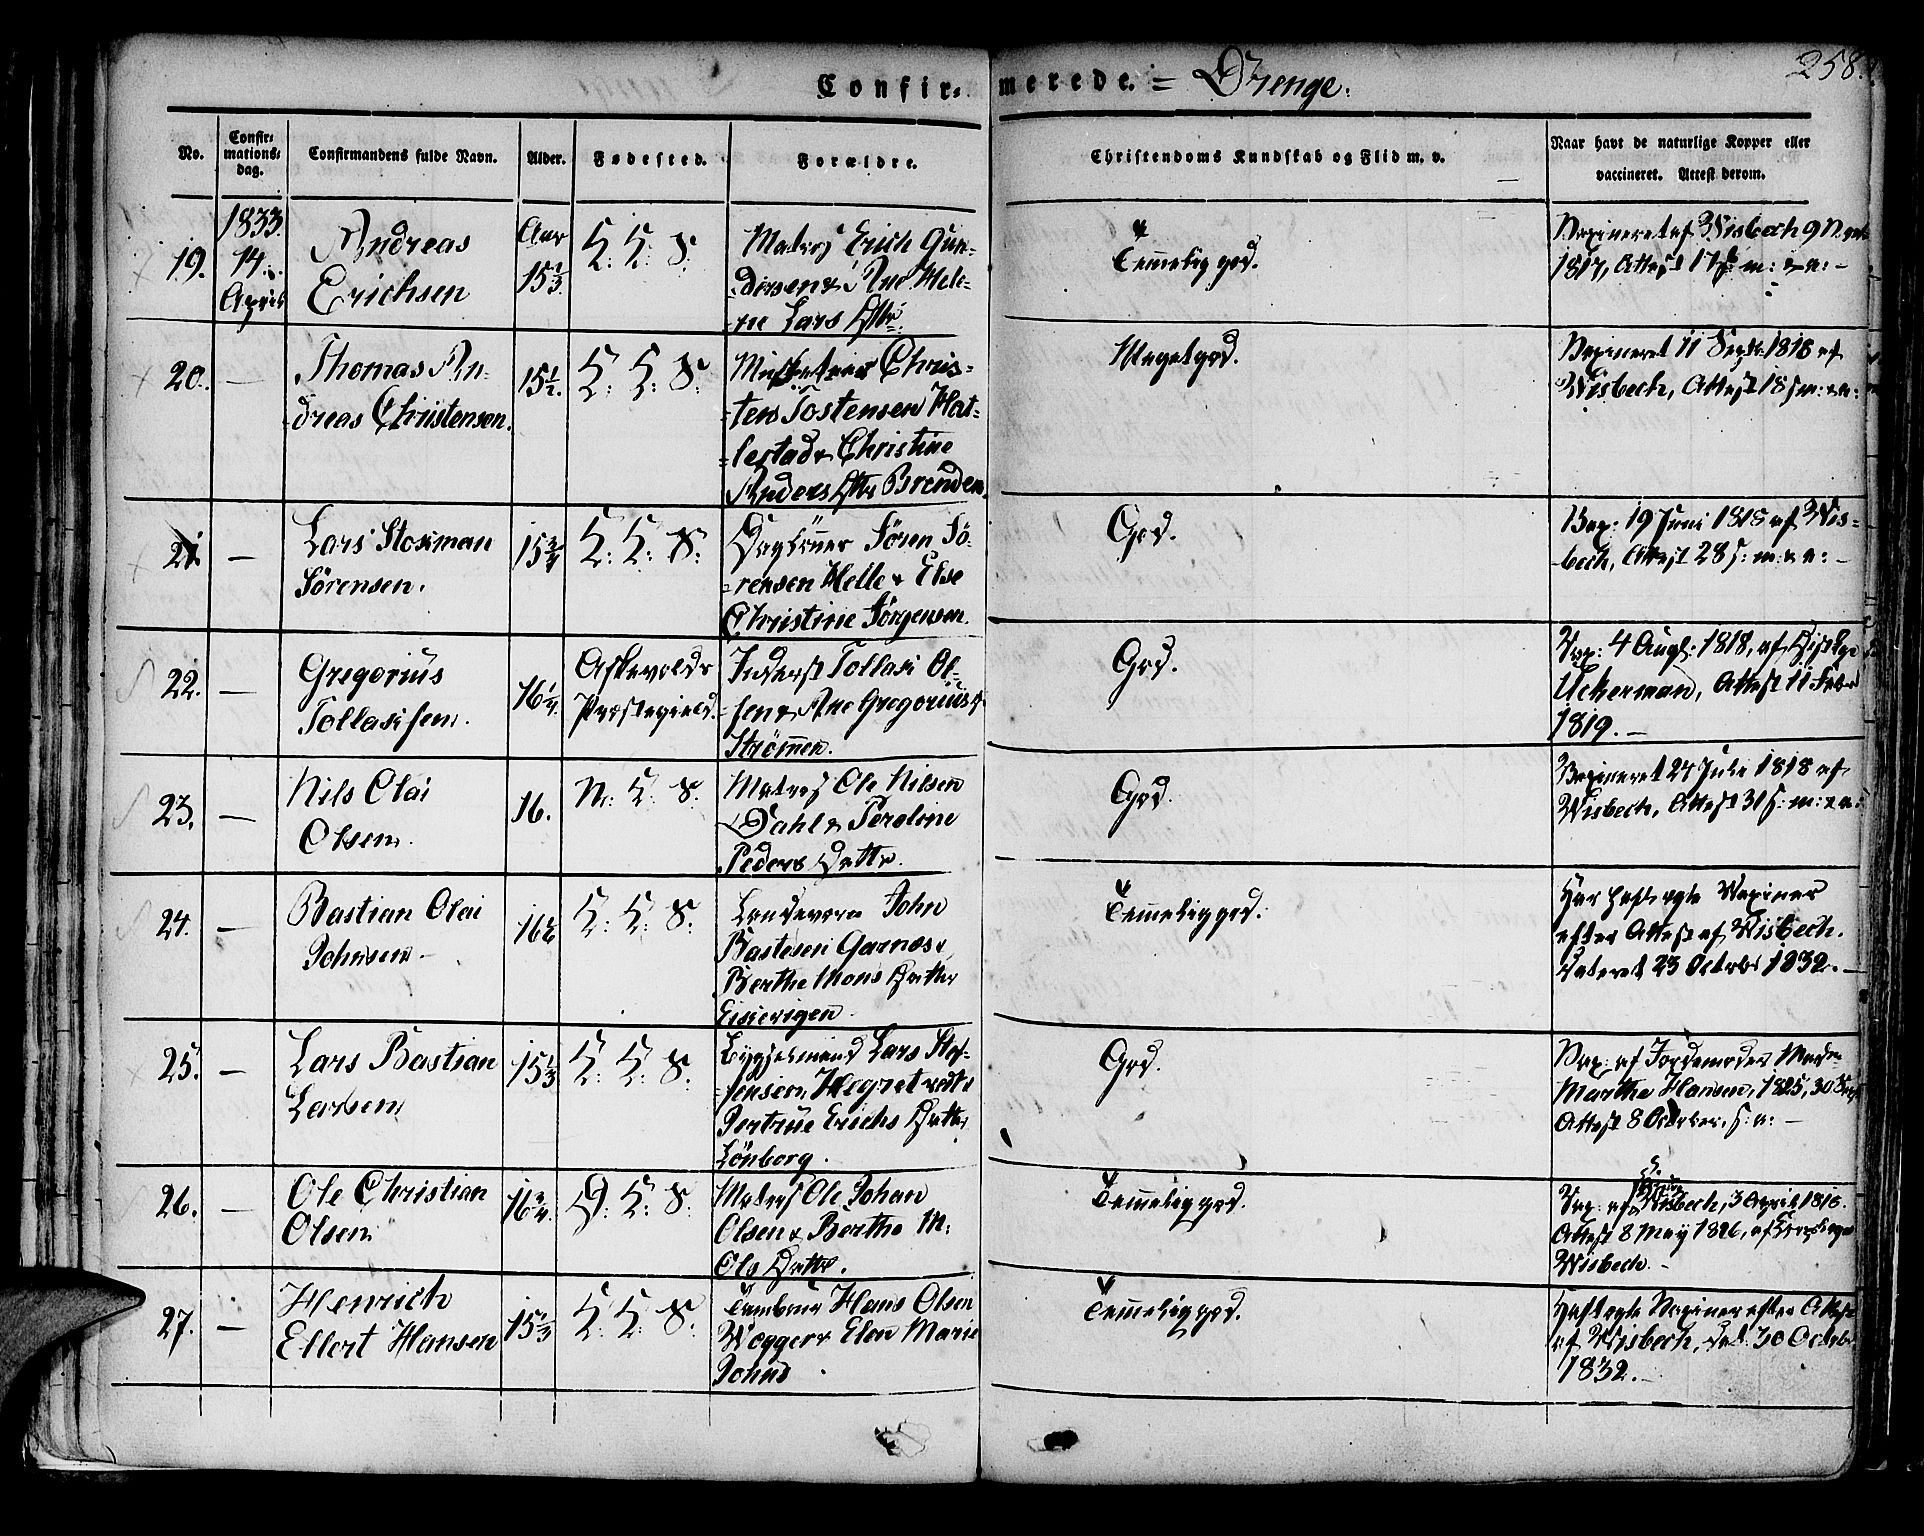 258.
Confir=merede. = Drenge.
No.
Confir=
mations=
dag.
Confirmandens fulde Navn.
Alder.
Fødested.
Forældre.
Christendoms Kundskab og Flid m. v.
Naar havt de naturlige Kopper eller
vaccineret. Attest derom.
19.
1833.
14.
April
Andreas
Erichsen
Aar
15 2/3.
K: K: S:
Matros Erich Gun-
dersen & Ane Hele-
ne Lars Dtr.
Temmelig god.
Vaxineret af Wisbech 9
1817, Attest 17
20.
—
Thomas An-
dreas Christensen.
15 1/2.
K: K: S:
Chris-
ten Tostensen Hat-
lestad & Christine
Anders Dtr Brenden.
Meget god.
Vaxineret 11 Septr 1818 af
Wisbech, Attest 18 s: m: & a:
21.
—
Lars Stosman
Sørensen.
15 3/4
K: K: S:
Søren Sø-
rensen Helle & Else
Christine Jörgensen.
God.
Vax: 19 Juni 1818 af Wis=
bech, Attest 28 s: m: & a: —
22.
—
Gregorius
Tollasisen.
16 1/4.
Askevolds
Præstegield.
Inderst Tollasi Ol-
sen & Ane Gregorius D
Strömmen.
God.
Vax: 4 Aug: 1818, af
Uckerman, Attest 11 Febr
1819. —
23.
—
Nils Olai
Olsen.
16.
N: K: S:
Matros Ole Nilsen
Dahl & Peroline
Peders Datter.
God.
Vaxineret 24 Juli 1818 af
Wisbech, Attest 31 s: m: & a:
24.
—
Bastian Olai
Johnsen —
16
K: K: S:
John
Bastesen Garnæs &
Berthe Mons Datter
Eisierigen
Temmelig god.
Har havt ægte Vaxiner
efter Attest af Wisbech.
dateret 23 Octobr 1832. —
25.
—
Lars Bastian
Larsen
15 1/3
K: K: S:
Bygselmand Lars Stef-
fensen Hegretvedt &
Gertrue Erichs Datter
Lönborg.
God.
Vax: af Jordemoder Madm
Marthe Hansen, 1825, 30
Attest 8 October, s: a: —
26.
—
Ole Christian
Olsen.
16 3/4.
D: K: S:
Matros Ole Johan
Olsen & Berthe M:
Ols Datter.
Temmelig god.
Vax: af Wisbech, 3 April 1818.
Attest 8 May 1826, af
Wisbech. —
27.
—
Henrich
Ellert Hansen
15 2/3
K: K: S:
Tambour Hans Olsen
Wogger & Elen Marie
Johns
Temmelig god.
Havt ægte Vaxiner efter Attest
af Wisbech, dat. 30 Octobr
1832. —